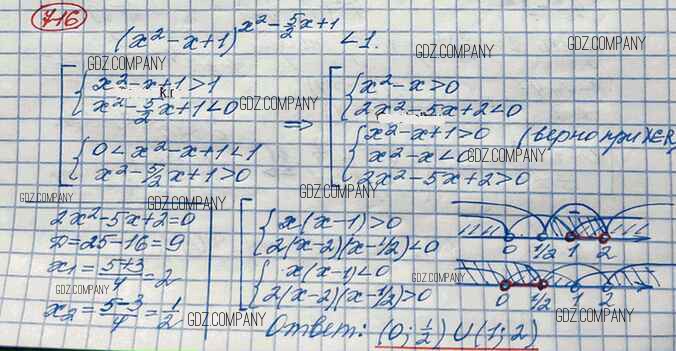 716
(x² - x + 1)^(x² - 5/2 x + 1) < 1.
GDZ.COMPANY
GDZ.COMPANY
GDZ.COMPANY
[ { x² - x + 1 > 1
x² - 5/2 x + 1 < 0
к.г
GDZ.COMPANY
{ 0 < x² - x + 1 < 1
x² - 5/2 x + 1 > 0
⇒
[ { x² - x > 0
2x² - 5x + 2 < 0
{ x² - x + 1 > 0 (верно при x∈R)
x² - x < 0
2x² - 5x + 2 > 0
GDZ.COMPANY
GDZ.COMPANY
GDZ.COMPANY
GDZ.COMPANY
GDZ.COMPANY
2x² - 5x + 2 = 0
D = 25 - 16 = 9
x₁ = (5+3)/4 = 2
x₂ = (5-3)/4 = 1/2
GDZ.COMPANY
GDZ.COMPANY
[ { x(x - 1) > 0
2(x - 2)(x - 1/2) < 0
{ x(x - 1) < 0
2(x - 2)(x - 1/2) > 0
0 1/2 1 2
0 1/2 1 2
GDZ.COMPANY
GDZ.COMPANY
GDZ.COMPANY
Ответ: (0; 1/2) ∪ (1; 2)